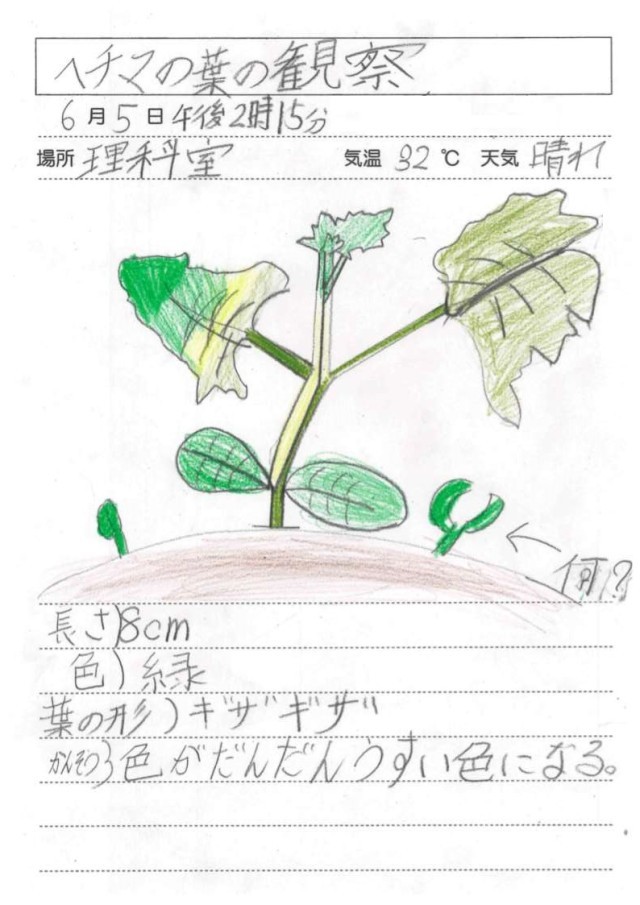 ヘチマの葉の観察
6月5日午後2時15分
場所 理科室 気温 32℃ 天気 晴れ
何?
長さ)8cm
色)緑
葉の形)ギザギザ
かんそう)色がだんだんうすい色になる。